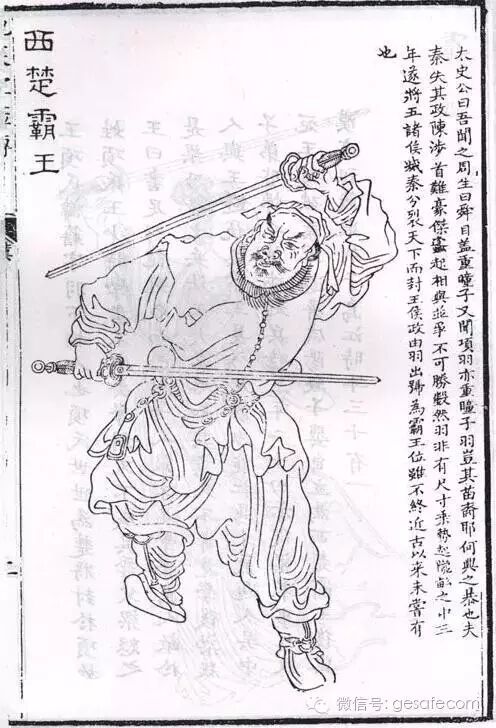 太史公曰吾聞之周生曰舜目蓋重瞳子又聞項羽亦重瞳子羽豈其苗裔耶何興之暴也夫
秦失其政陳涉首難豪傑蠭起相與並爭不可勝數然羽非有尺寸乘勢起隴畝之中三
年遂將五諸侯滅秦分裂天下而封王侯政由羽出號為霸王位雖不終近古以來未嘗有
也
西楚霸王
微信号: gesafecom